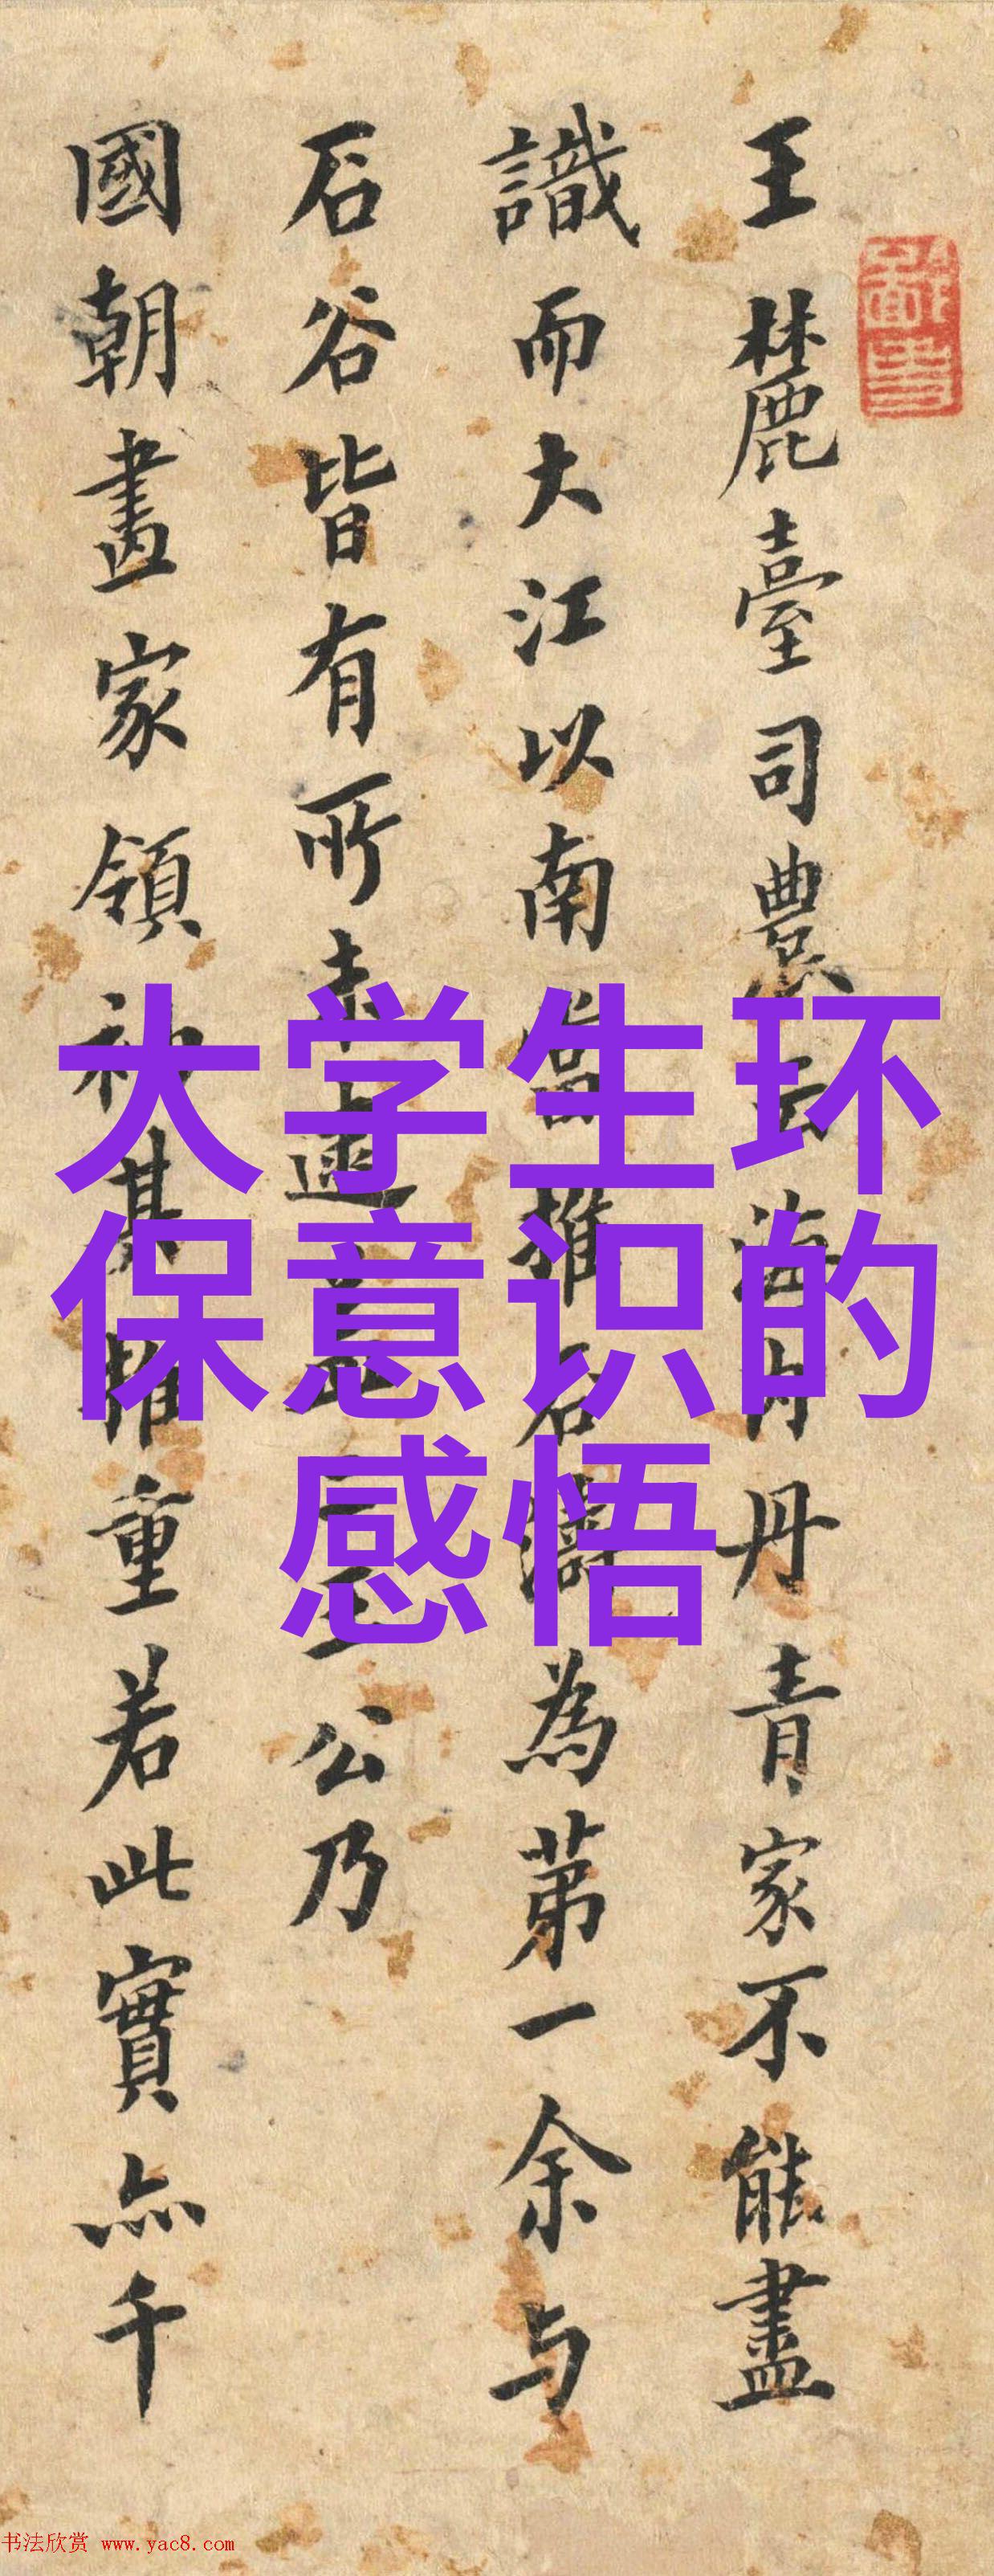 王麓臺司農云海內丹青家不能盡
識而大江以南當推石濤為第一余与
石谷皆有所未逮王公乃
國朝畫家領袖其推重若此實亦千
大学生环
保意识的
感悟
书法欣赏 www.yac8.com